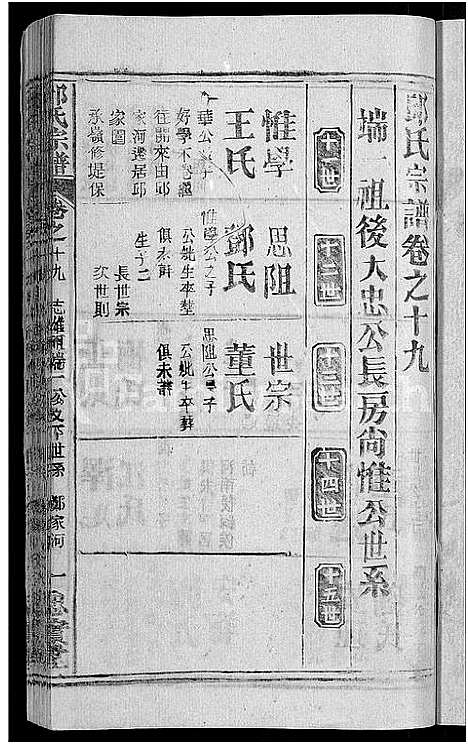 鄭氏宗譜卷之十九
端一祖後大忠公長房尚惟公世系
十一世
十二世
十三世
十四世
十五世
惟學
王氏
華公
好學不
往
來由邱
家河遷居邱
家園
承嶺修堤保
思阻
鄭氏
惟學公之子
公妣生卒塟
俱未詳
生子二
長世宗
次世則
世宗
董氏
思阻公長子
公妣生卒葬
俱未詳
氏宗譜
卷之十九
志雄祖端一公
下世系
鄭家河
一